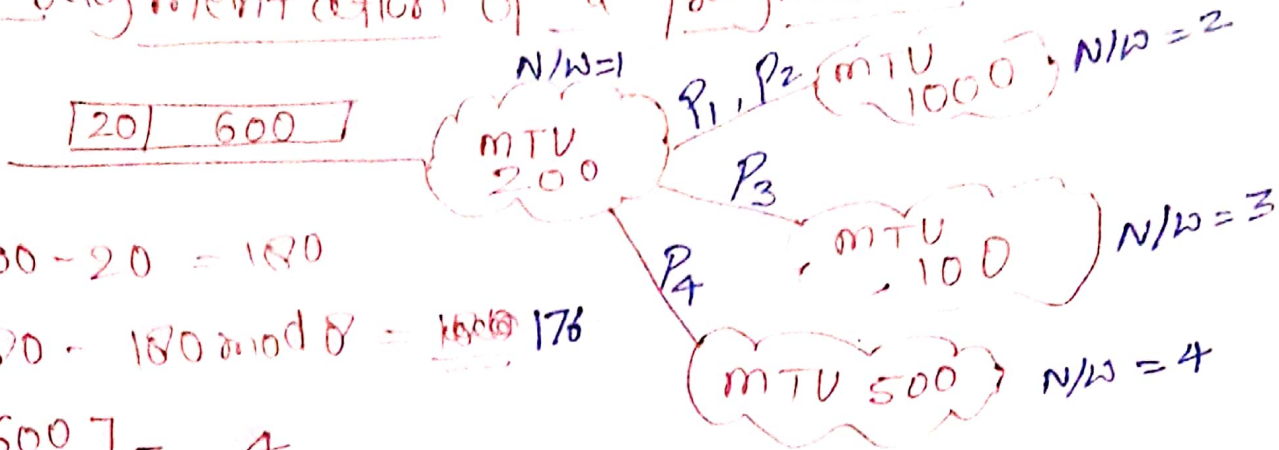 N/W=1
20 600
MTU
200
P1, P2
MTU
1000
N/W = 2
P3
MTU
100
N/W = 3
P4
MTU 500
N/W = 4
00-20 = 180
180 mod 8 = 176
600
4